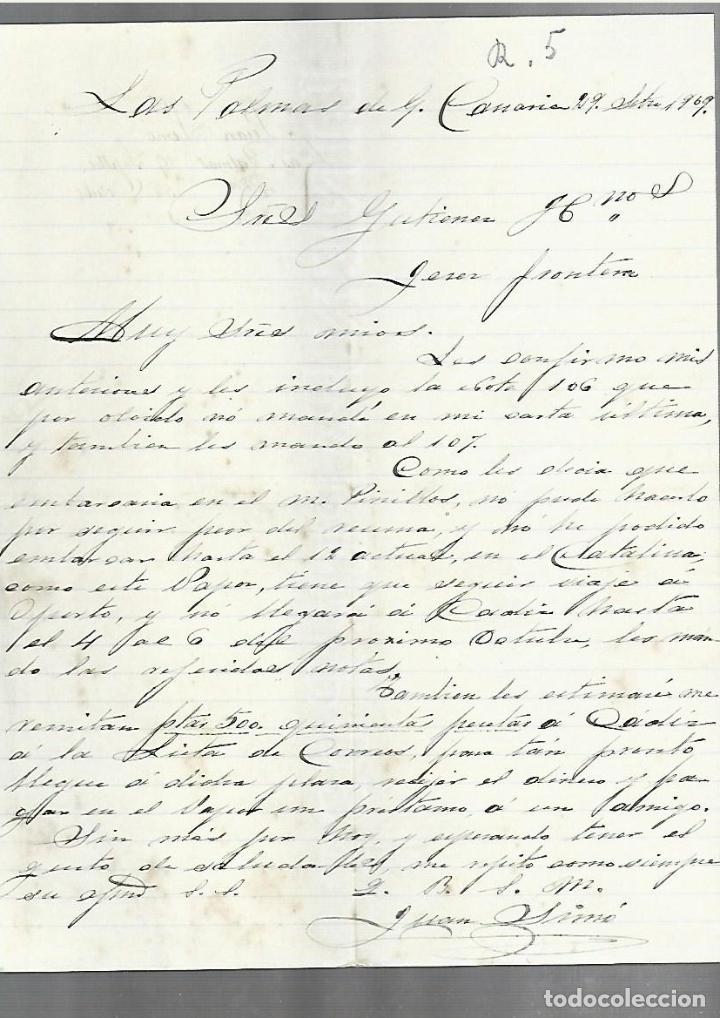 R. 5
Las Palmas de G. Canaria 29. Stbre 1909.
Sres Gutierrez Hnos
Jerez frontera
Muy Sres mios.
Les confirmo mis
anteriores y les incluyo la Nota 106 que
por olvido nó mandé en mi carta última,
y tambien les mando al 107.
Como les decia que
embarcaria en el M. Pinillos, no pude hacerlo
por seguir peor del reuma, y nó he podido
embarcar hasta el 12 actual, en el Catalina;
como este Vapor, tiene que seguir viaje á
Oporto, y nó llegará á Cádiz hasta
el 4 al 6 del proximo Octubre, les man-
do las referidas notas.
Tambien les estimaré me
remitan ptas 500. quinientas pesetas á Cádiz
á la Lista de Correos, para tán pronto
llegue á dicha plaza, recojer el dinero y pa-
gar en el Vapor un préstamo, á un amigo.
Sin más por hoy, y esperando tener el
gusto de saludarles, me repito como siempre
su afmo S. S. Q. B. S. M.
Juan Simó
todocoleccion
todocoleccion.net